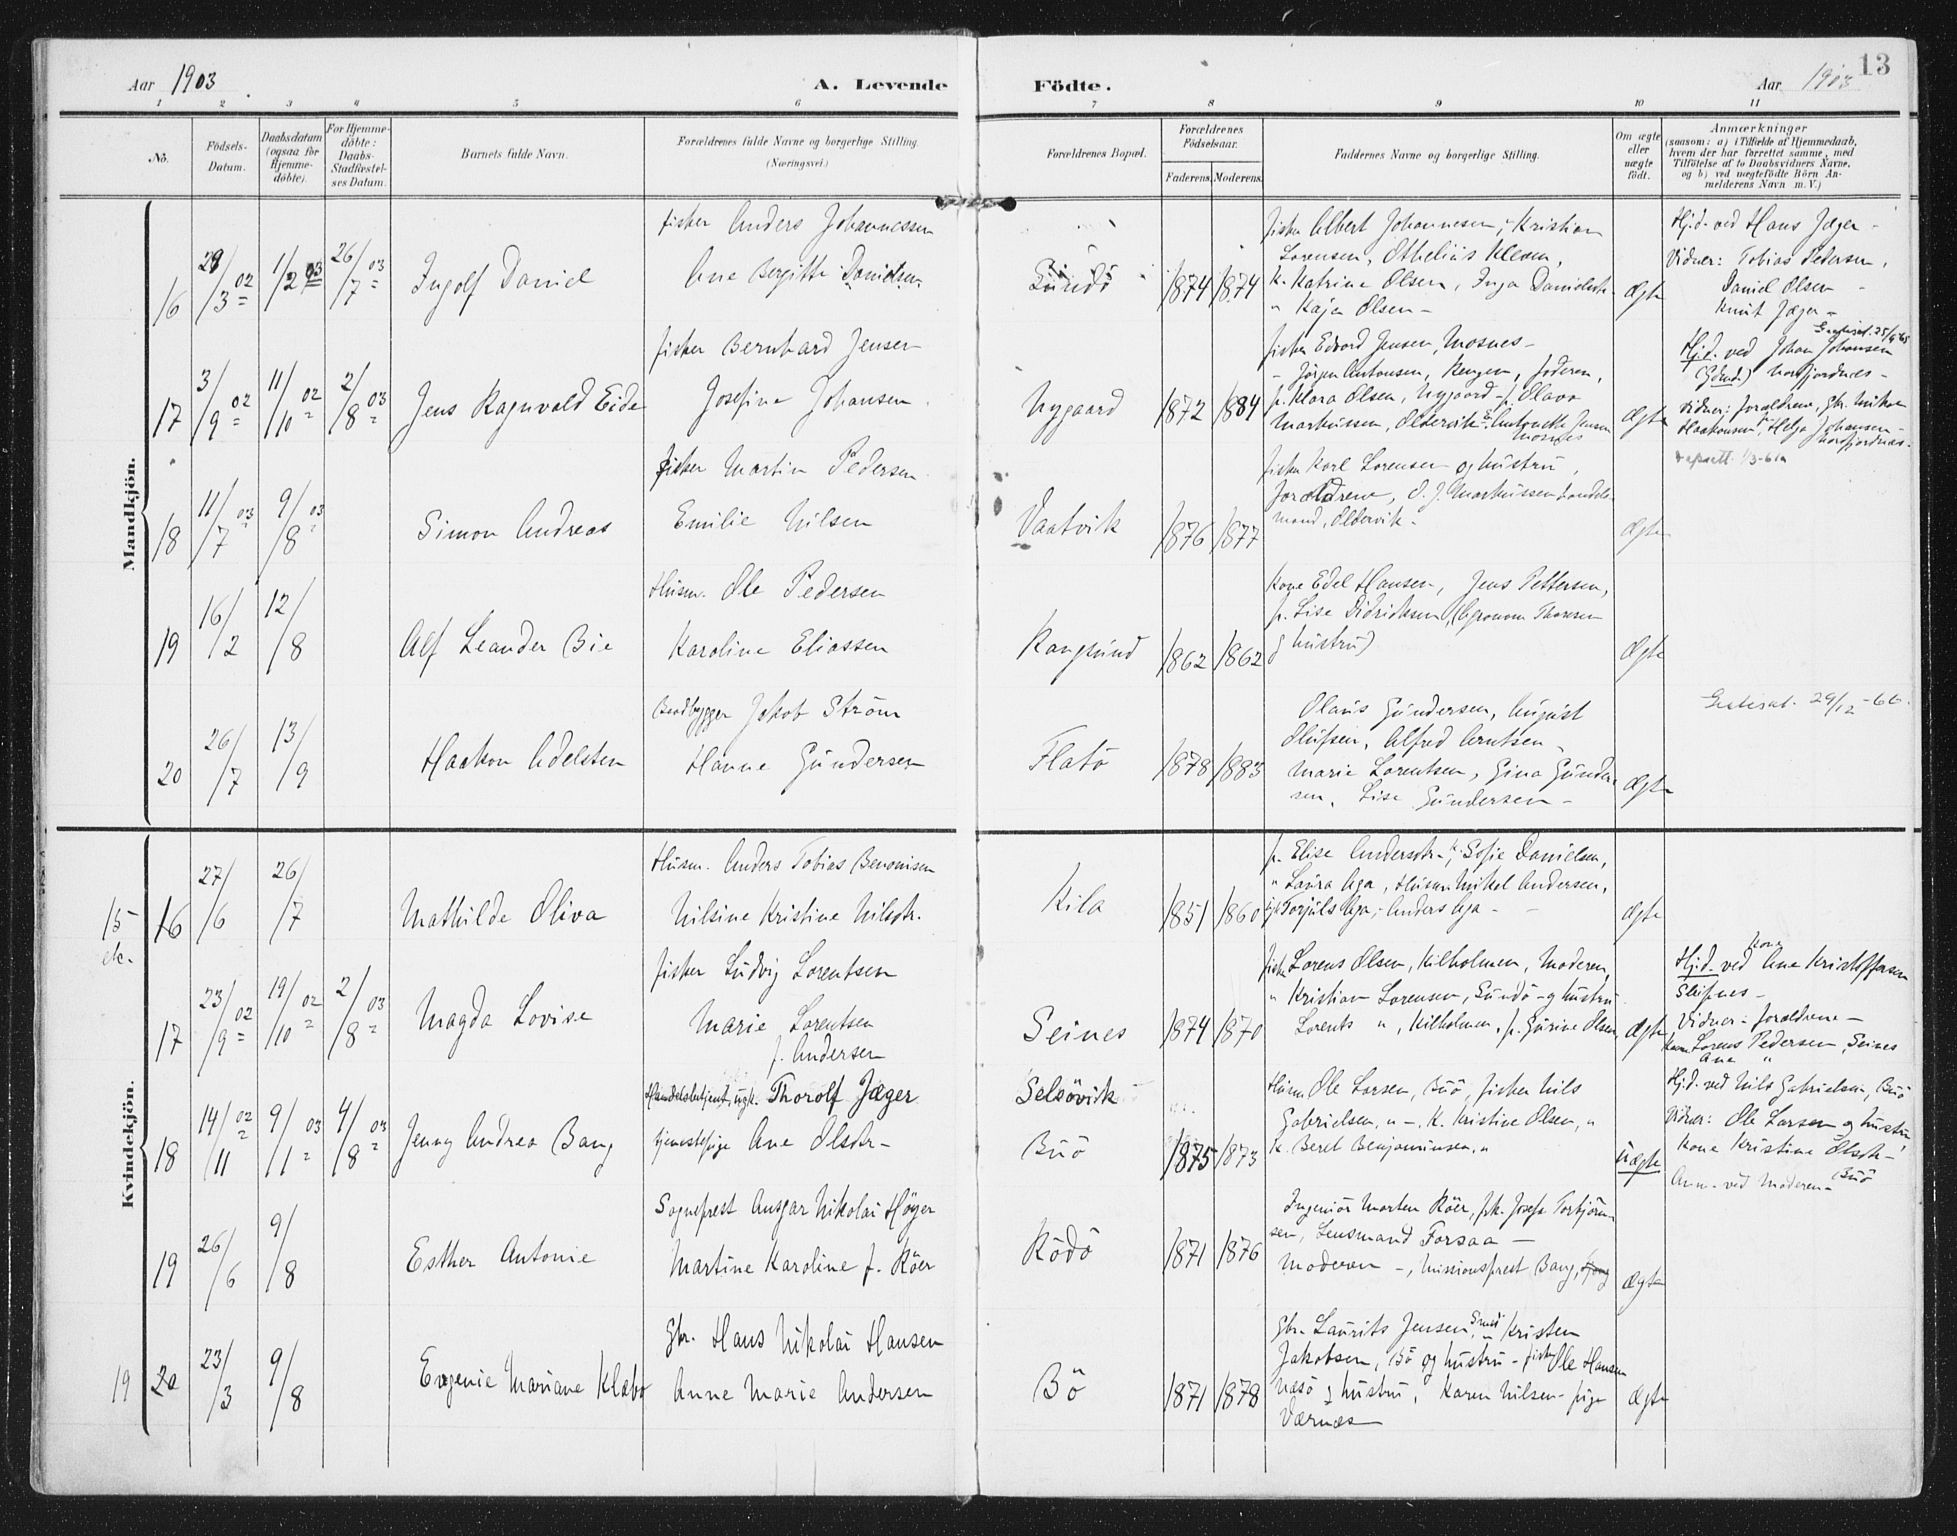 Aar 1903
A. Levende
Födte.
Aar 1903
13
1 2 3 4 5 6 7 8 9 10 11
No.
Födsels-Datum.
Daabsdatum (ogsaa for Hjemme-döbte).
For Hjemme-döbte: Daabs-Stadfæstel-ses Datum.
Barnets fulde Navn.
Forældrenes fulde Navne og borgerlige Stilling.
(Næringsvei.)
Forældrenes Bopæl.
Forældrenes Födselsaar.
Faderens. Moderens.
Faddernes Navne og borgerlige Stilling.
Om ægte eller uægte födt.
Anmærkninger
(saasom: a) i Tilfælde af Hjemmedaab,
hvem der har forrettet samme, med
Tilföielse af to Daabsvidners Navne,
og b) ved uægtefödte Börn An-
melderens Navn m. V.)
Mandkjön.
16 28/3 02 1/2 03 26/7 03 Ingolf Daniel
fisker Anders Johannessen
Ane Bergitte Danielsen
Sundö 1874 1874
fisker Albert Johannesen, Kristian
Lorensen, Othelius Klesen,
k. Katrine Olsen, Inga Danielsdtr.
" Kaja Olsen -
Ægte
Hjd. ved Hans Jæger -
Vidner: Tobias Pedersen,
Daniel Olsen -
Knut Jæger -
17 3/9 02 11/10 02 2/8 03 Jens Ragnvald Eide
fisker Bernhard Jensen
Josefine Johansen
Nygaard 1872 1884
fisker Edvard Jensen, Mosnes -
- Jörgen Antonsen, Rengen, Foderen,
p. Klara Olsen, Nygaard - p. Olava
Markussen, Oldervik Antonette Jensen
Mosnes
Ægte
Hjd. ved Johan Johansen
(Gbrd.) Nordfjordnæs -
Vidner: forældrene, Gbr. Mikal
Haakonsen, Helja Johansen -
Nordfjordnæs -
18 11/7 03 9/8 03 Simon Andreas
fisker Martin Pedersen
Emilie Nilsen
Vaatvik 1876 1877
fisker Karl Lorensen og hustru,
Forældrene, O. J. Markussen handels-
mand, Oldervik -
Ægte
19 16/2 12/8 Alf Leander Bie
Husm. Ole Pedersen
Karoline Eliassen
Rangsund 1862 1862
Kone Edel Hansen, Jens Pettersen,
p. Lise Didriksen, (Agronom Thoresen
g hustru)
Ægte
20 26/7 13/9 Haakon Adelsten
Baadbygger Jakob Ström
Hanne Gundersen
Flatö 1878 1883
Olaus Gundersen, August
Olufsen, Alfred Arntsen -
Marie Lorentsen, Gina Gunder-
sen, Lise Gundersen -
Ægte
29/12-66.
Kvindekjön.
15 16 27/6 26/7 Mathilde Oliva
Husm. Anders Tobias Benonisen
Nilsine Kristine Nilsdtr.
Kila 1851 1860
p. Elise Andersdtr., k. Sofie Danielsen,
" Laura Aga, Husm. Mikel Andersen,
Torjuls Aga, Anders Aga -
Ægte
17 23/9 02 19/10 02 2/8 03 Magda Lovise
fisker Ludvig Lorentsen
Marie Lorentsen
f. Andersen
Seines 1874 1870
fisker Lorens Olsen, Kilholmen, Moderen,
" Kristian Lorensen, Sundö - g hustru
Lorents ", Kilholmen, p. Gurine Olsen,
Ægte
Hjd. ved kone Ane Kristoffersen
Sleipnes -
Vidner - forældrene -
Lorens Pedersen, Seines
Kone Ane "
18 14/11 02 9/1 03 4/8 03 Jenny Andrea Bang
Handelsbetjent, ugk. Thorolf Jæger
tjenestepige Ane Olsdtr -
Selsövik
Buö 1875 1873
Husm Ole Larsen, Buö, fisker Nils
Gabrielsen, " -. K. Kristine Olsen, "
k. Beret Benjaminsen, "
uægte
Hjd. ved Nils Gabrielsen, Buö
Vidner: Ole Larsen og hustru,
Kone Kristine Olsdtr -
Anm. ved Moderen - Buö
19 26/6 9/8 Esther Antonie
Sogneprest Ansgar Nikolai Höyer
Martine Karoline f. Röer
Rödö 1871 1876
Ingeniör Morten Röer, frk. Josefa Torbjörn-
sen, Lensmand Forsaa -
Moderen -, Missionsprest Bang,
Ægte
19 20 23/3 9/8 Eugenie Mariane Klæbo
Gbr. Hans Nikolai Hansen
Anne Marie Andersen
Bö 1871 1878
Gbr. Laurits Jensen, Kristen
Jakobsen, Bö og hustru - fisker Ole Hansen
Næsö g hustru, Karen Nilsen - pige
Værnes
Ægte